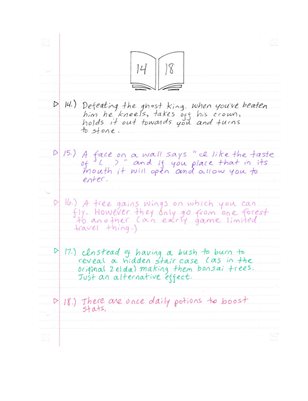 14 18
14.) Defeating the ghost king. When you've beaten
him he kneels, takes off his crown,
holds it out towards you and turns
to stone.
15.) A face on a wall says "I like the taste
of "(   )" and if you place that in its
mouth it will open and allow you to
enter.
16.) A tree gains wings on which you can
fly. However they only go from one forest
to another (an early game limited
travel thing.)
17.) Instead of having a bush to burn to
reveal a hidden stair case (as in the
original Zelda) making them bonsai trees.
Just an alternative effect.
18.) There are once daily potions to boost
stats.